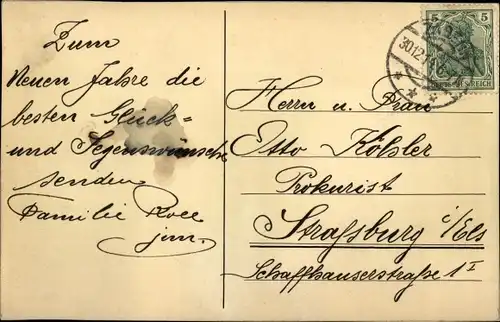 Zum
Neuen Jahre die
besten Glück-
und Segenswünsche
senden
Familie
jun.
Herrn u. Frau
Otto Kölsler
Prokurist
Straßburg i/Els
Schaffhauserstraße 1 I
5 5
REICH
30.12.